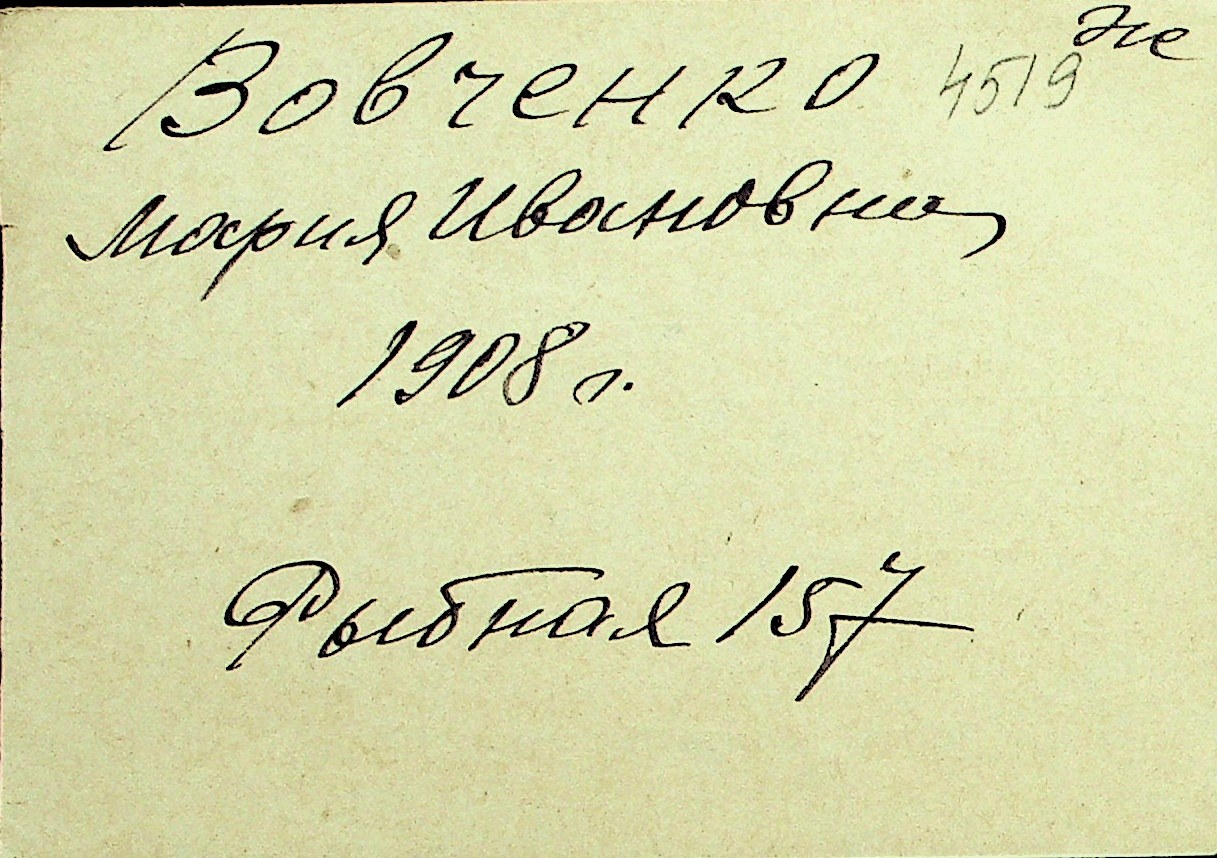 Вовченко 4519 же
Мария Ивановна
1908 г.
Рыбная 157